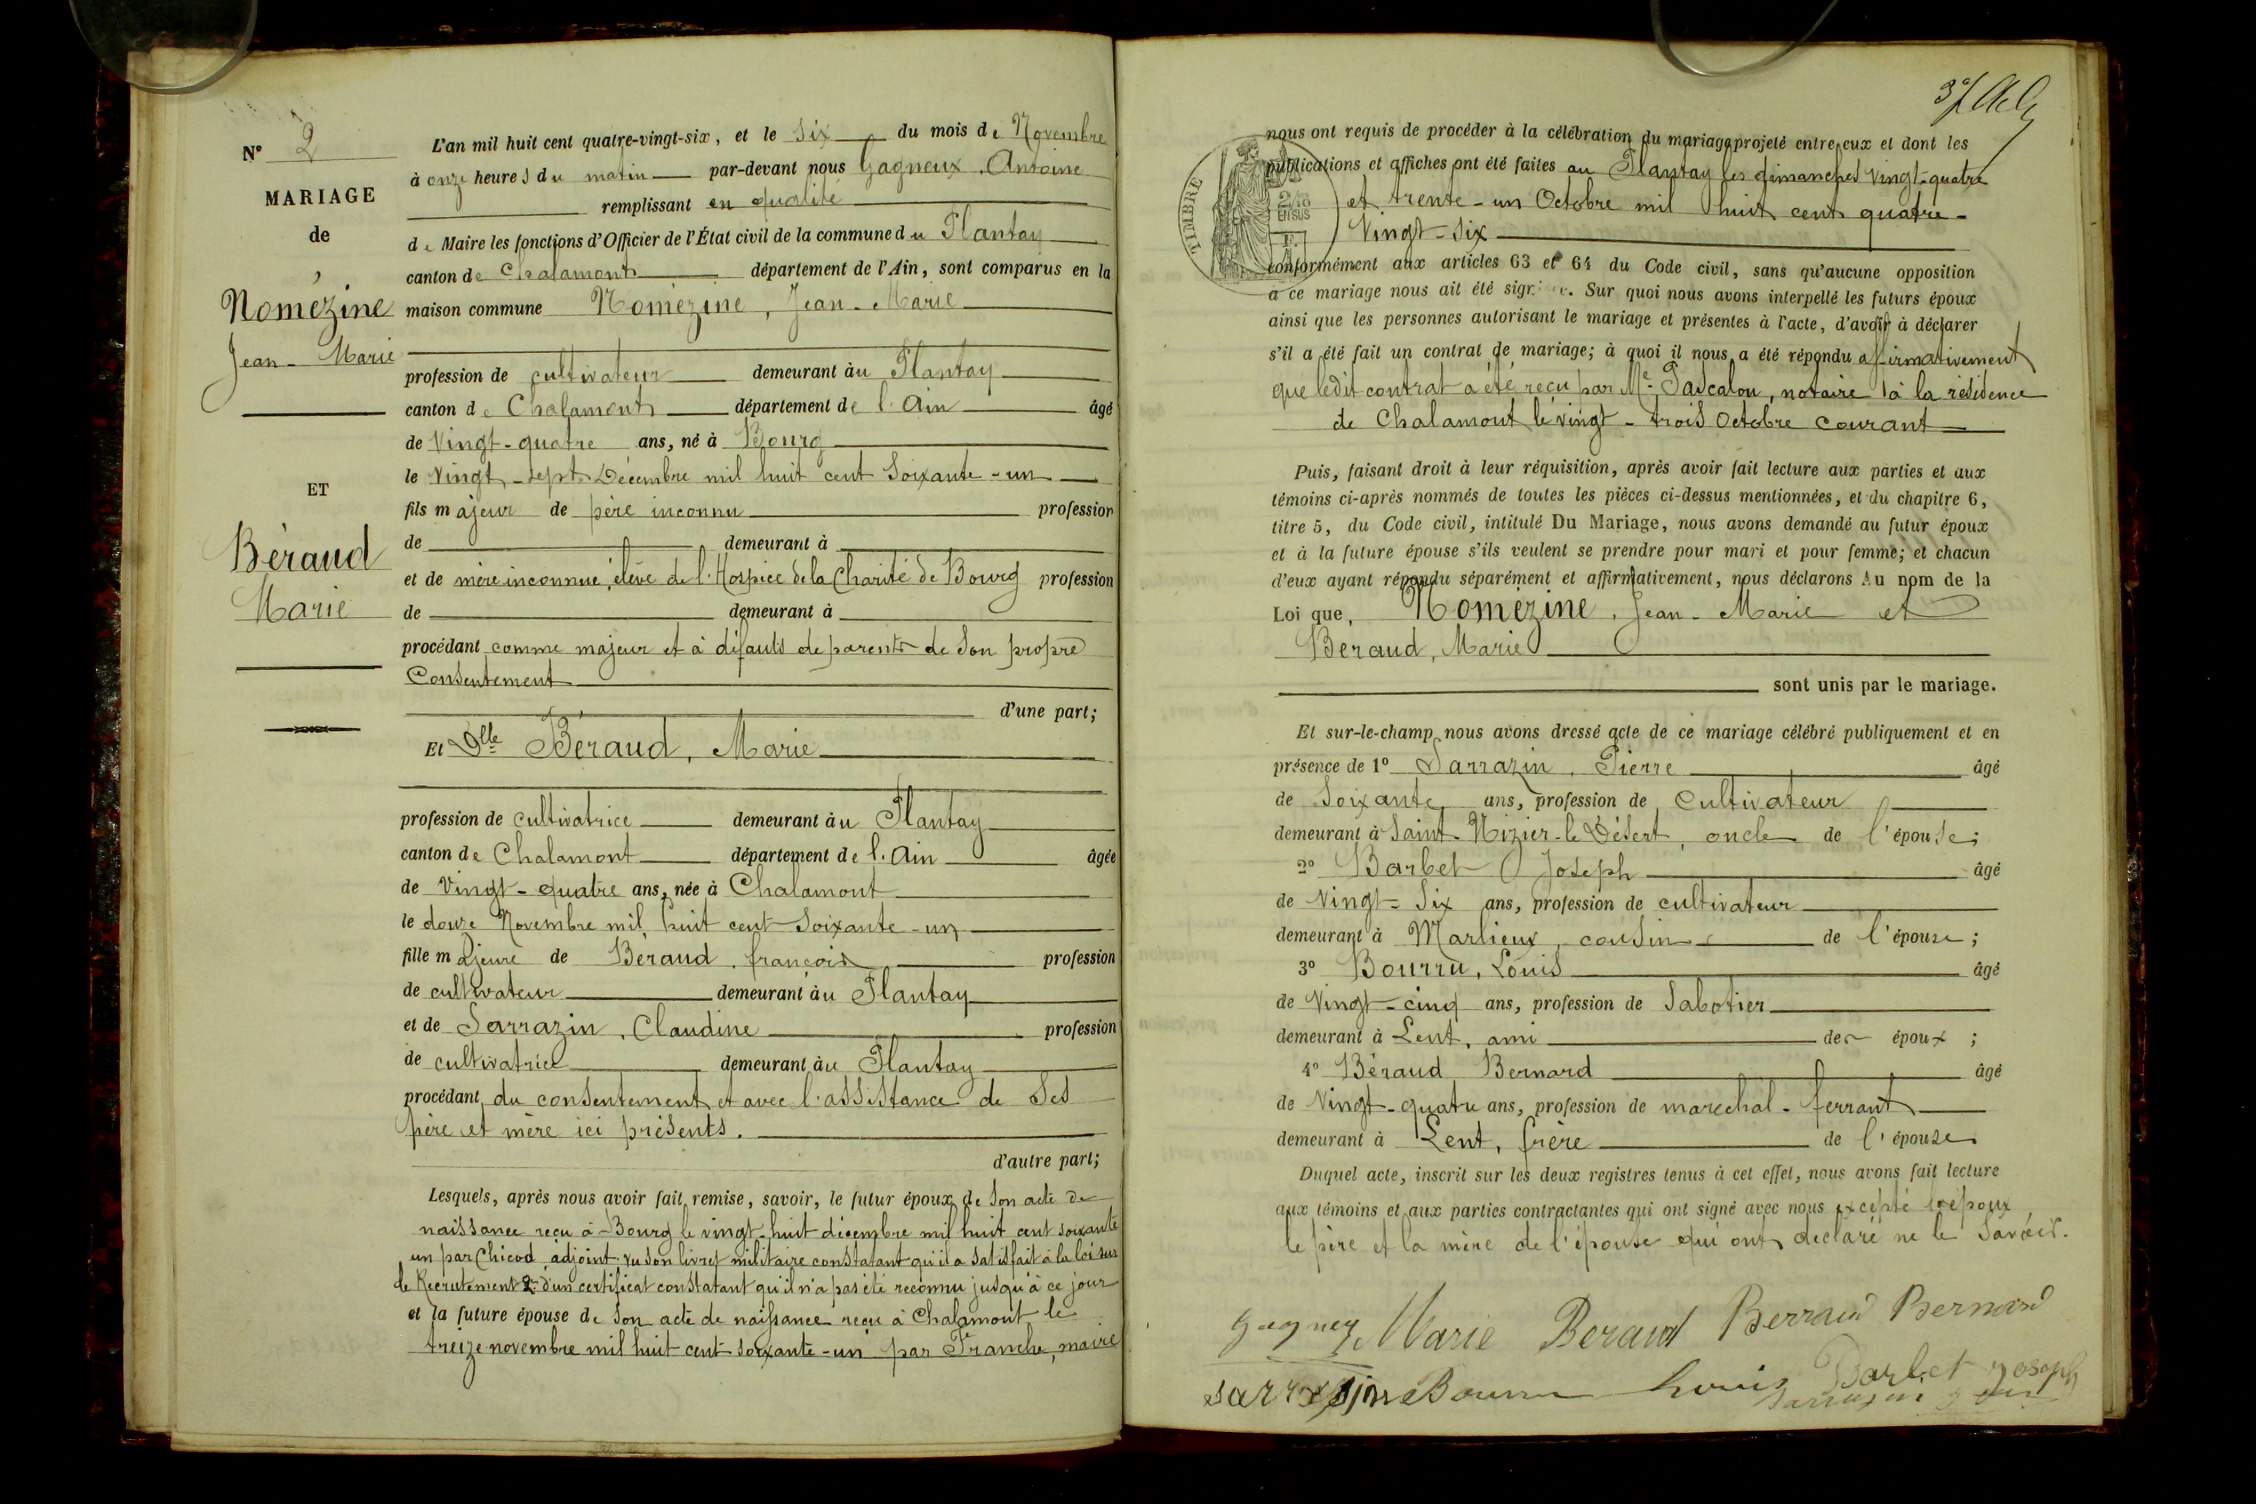 N° 2
MARIAGE
de
Nomézine
Jean-Marie
ET
Béraud
Marie
L'an mil huit cent quatre-vingt-six, et le six du mois de Novembre
à onze heures du matin par-devant nous Gagneux, Antoine
remplissant en qualité
de Maire les fonctions d'Officier de l'État civil de la commune du Plantay
canton de Chalamont département de l'Ain, sont comparus en la
maison commune Nomézine, Jean-Marie
profession de cultivateur demeurant au Plantay
canton de Chalamont département de l'Ain âgé
de Vingt-quatre ans, né à Bourg
le Vingt-sept Décembre mil huit cent Soixante-un
fils majeur de père inconnu profession
de demeurant à
et de mère inconnue, élève de l'Hospice de la Charité de Bourg profession
de demeurant à
procédant comme majeur et à défauts de parents de son propre
Consentement
d'une part;
Et Dlle Béraud, Marie
profession de cultivatrice demeurant au Plantay
canton de Chalamont département de l'Ain âgée
de Vingt-quatre ans, née à Chalamont
le douze Novembre mil huit cent Soixante-un
fille majeure de Béraud, françois profession
de cultivateur demeurant au Plantay
et de Sarrazin, Claudine profession
de cultivatrice demeurant au Plantay
procédant du consentement et avec l'assistance de Ses
père et mère ici présents.
d'autre part;
Lesquels, après nous avoir fait remise, savoir, le futur époux de son acte de
naissance reçu à Bourg le vingt-huit décembre mil huit cent soixante
un par Chicod, adjoint vu son livret militaire constatant qu'il a satisfait à la loi sur
le Recrutement 2° d'un certificat constatant qu'il n'a pas été reconnu jusqu'à ce jour
et la future épouse de son acte de naissance reçu à Chalamont le
treize novembre mil huit cent soixante-un par Franche, maire
TIMBRE
EN SUS
nous ont requis de procéder à la célébration du mariage projeté entre eux et dont les
publications et affiches ont été faites au Plantay les dimanches vingt-quatre
et trente-un Octobre mil huit cent quatre-
Vingt-Six
conformément aux articles 63 et 64 du Code civil, sans qu'aucune opposition
à ce mariage nous ait été Sur quoi nous avons interpellé les futurs époux
ainsi que les personnes autorisant le mariage et présentes à l'acte, d'avoir à déclarer
s'il a été fait un contrat de mariage; à quoi il nous a été répondu affirmativement
que ledit contrat a été reçu par Me Pascalon, notaire à la résidence
de Chalamont le vingt-trois Octobre courant
Puis, faisant droit à leur réquisition, après avoir fait lecture aux parties et aux
témoins ci-après nommés de toutes les pièces ci-dessus mentionnées, et du chapitre 6,
titre 5, du Code civil, intitulé Du Mariage, nous avons demandé au futur époux
et à la future épouse s'ils veulent se prendre pour mari et pour femme; et chacun
d'eux ayant répondu séparément et affirmativement, nous déclarons Au nom de la
Loi que, Nomézine, Jean-Marie et
Beraud, Marie
sont unis par le mariage.
Et sur-le-champ nous avons dressé acte de ce mariage célébré publiquement et en
présence de 1° Sarrazin, Pierre âgé
de Soixante ans, profession de Cultivateur
demeurant à Saint-Nizier-le-Désert, oncle de l'épouse;
2° Barbet Joseph âgé
de Vingt-Six ans, profession de cultivateur
demeurant à Marlieux, cousin de l'épouse;
3° Bourru, Louis âgé
de Vingt-cinq ans, profession de Sabotier
demeurant à Lent, ami des époux;
4° Béraud Bernard âgé
de Vingt-quatre ans, profession de marechal-ferrant
demeurant à Lent, frère de l'épouse
Duquel acte, inscrit sur les deux registres tenus à cet effet, nous avons fait lecture
aux témoins et aux parties contractantes qui ont signé avec nous excepté l'époux
le père et la mère de l'épouse qui ont déclaré ne le Savoir.
Marie Beraud Berraud Bernard
Louis Barbet Joseph